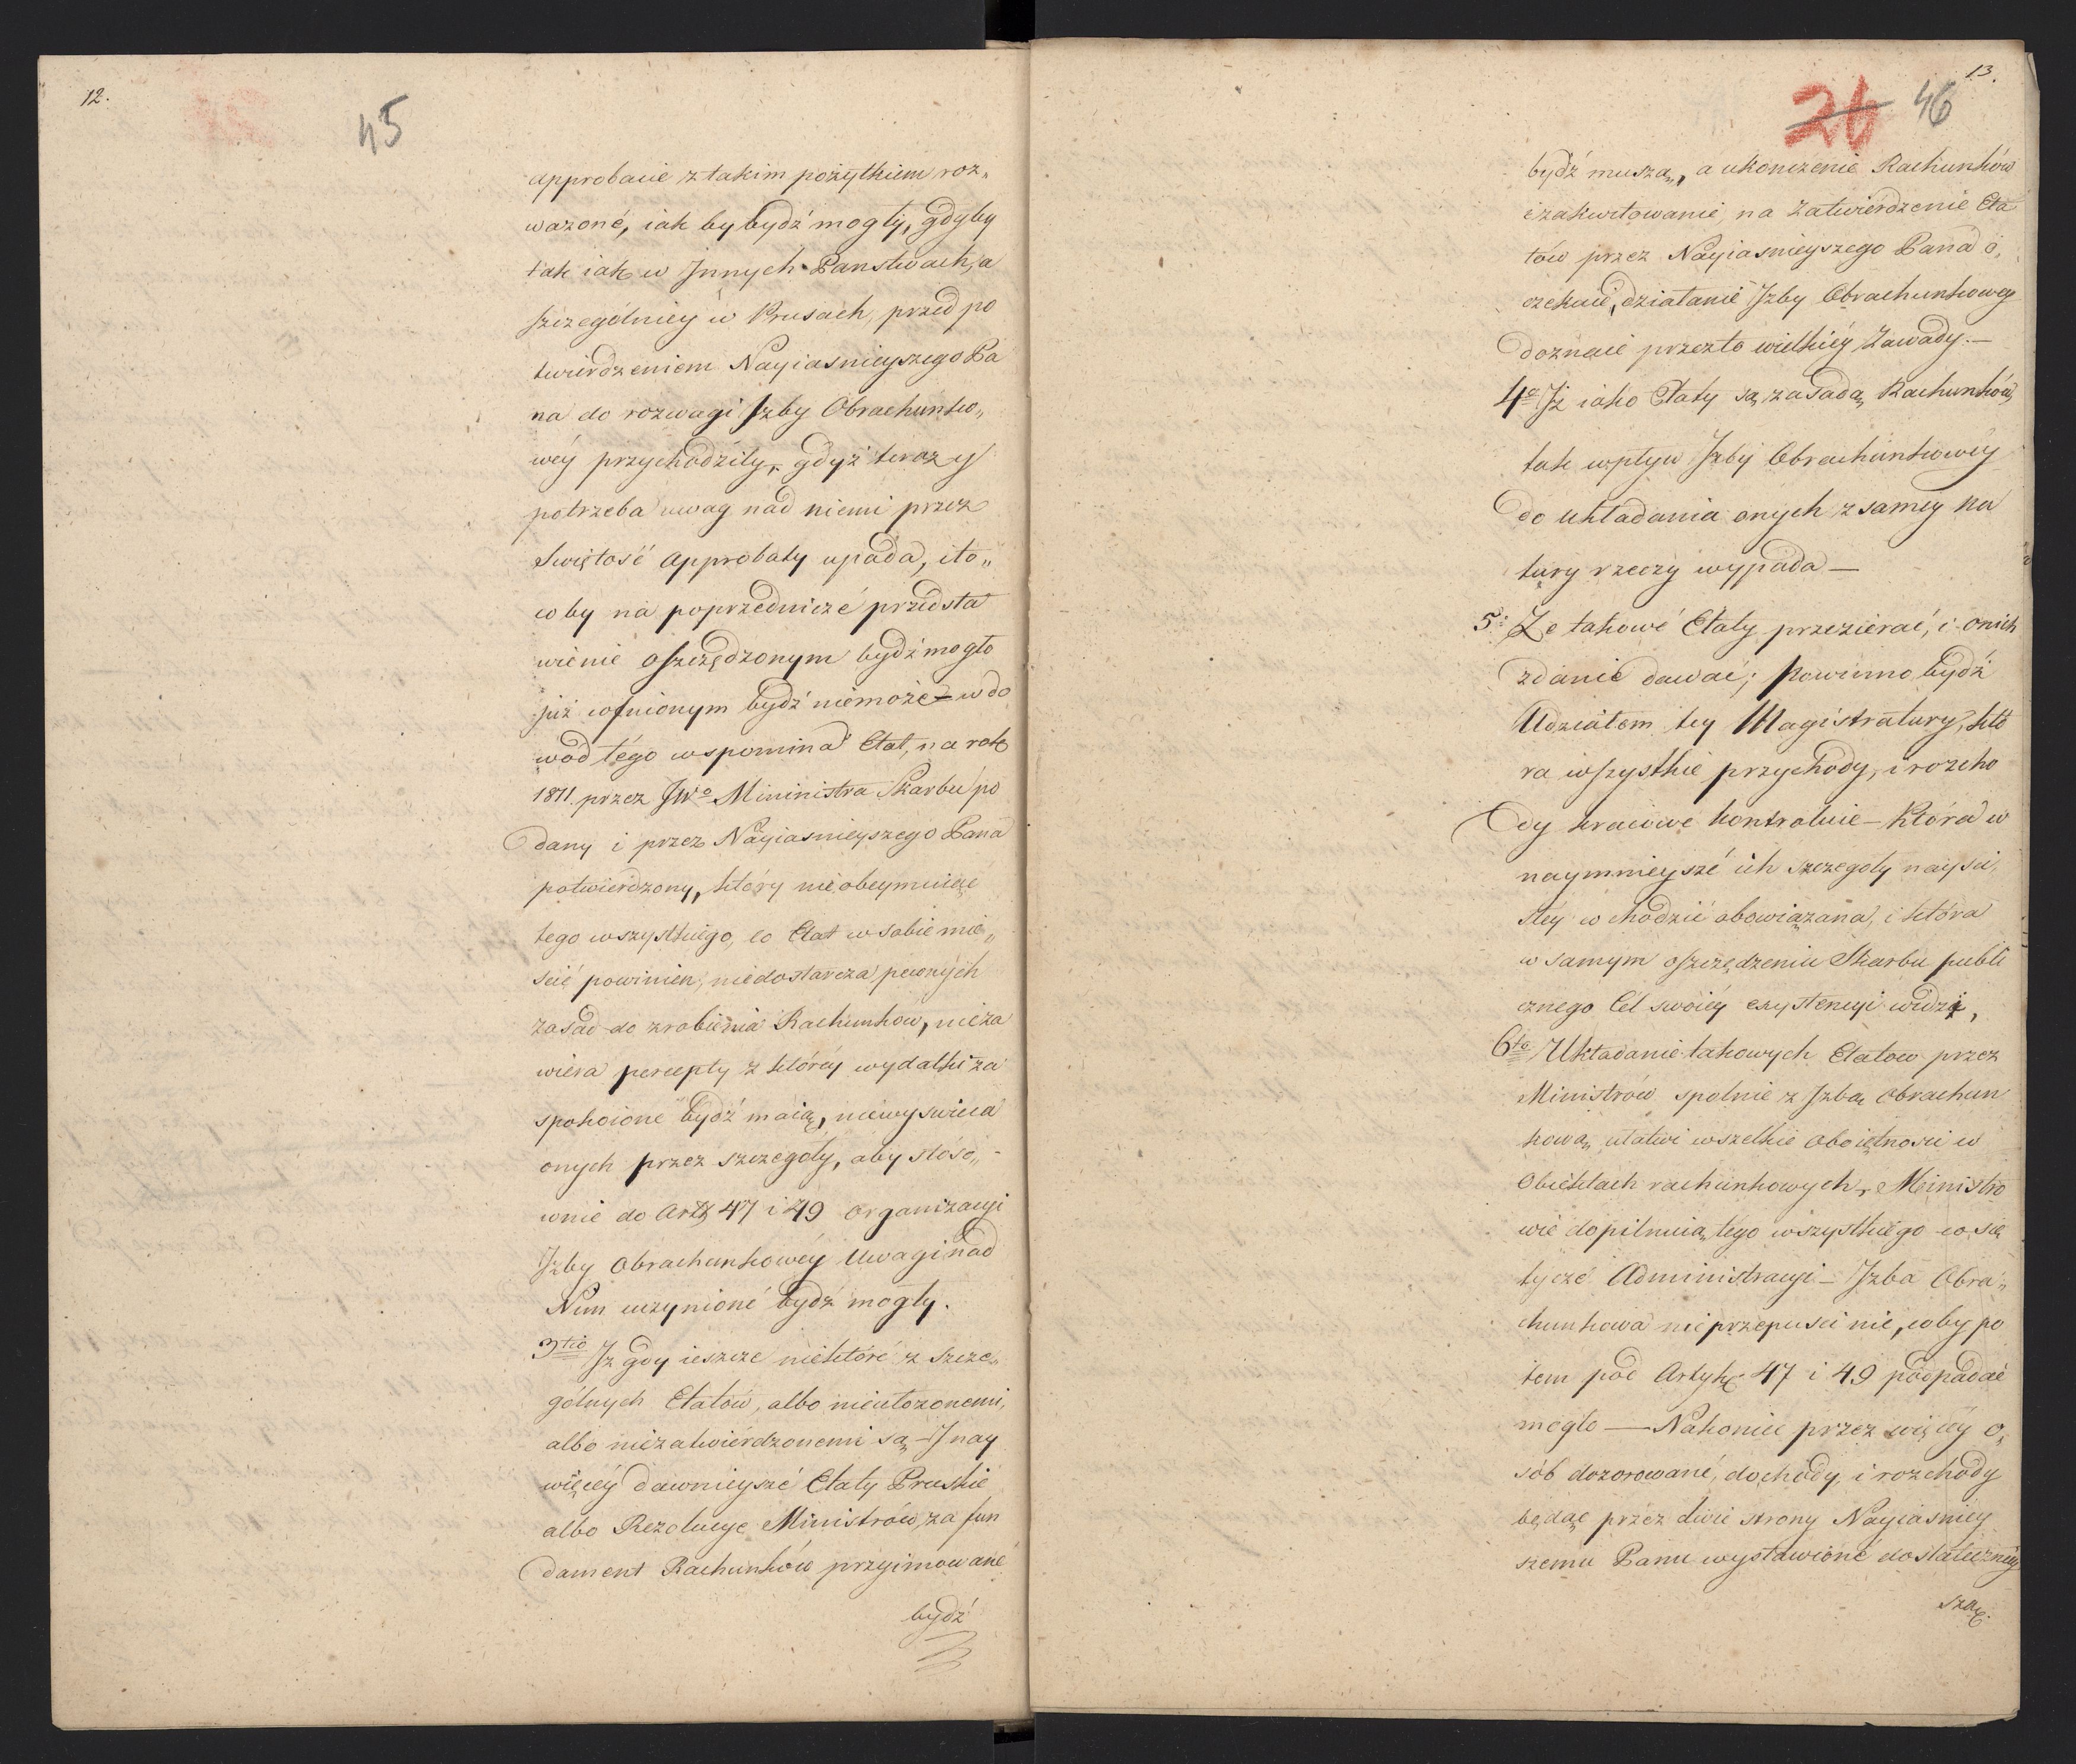 12.
45
approbacie z takim pożytkiem roz„
ważoné, iak by bydź mogły, gdyby
tak iak w Jnnych Panstwach, a
szczegolniéy w Prusach, przed po
twierdzeniem Nayiasnieyszego Pa
na do rozwagi Jzby Obrachunko„
wéy przychodziły, gdyż teraz y
potrzeba uwag nad niemi przez
Swiętość approbaty upada, i to„
co by na poprzedniczé przedsta
wienie oszczędzonym bydź mogło
już cofnionym bydź niemoże – w do
wód tego wspomina Etat, na rok
1811. przez JWo Mininistra Skarbu po
dany i przez Nayiasnieyszego Pana
potwierdzony, który nieobeymuiąc
tego wszystkiego, co Etat w sobie mie„
scić powinien, niedostarcza pewnych
zasad do zrobienia Rachunkow, nieza
wiera percepty z któréy wydatki za
spokoione bydź maią, niewyswieca
onych przez szczegoły, aby stóso„
wnie do Artk 47 i 49 Organizacyi
Jzby Obrachunkowéy Uwagi nad
Nim uczynioné bydź mogły.
3tio Jz gdy ieszcze niektóré z szcze„
gólnych Etatów, albo nieułozonemi,
albo niezatwiérdzonemi są – J nay
więcéy dawnieyszé Etaty Pruskie
albo Rezolucye Ministrów, za fun
dament Rachunków przyimowané
bydź
13.
26 46
bydź muszą, a ukonczenie Rachunków
i zakwitowanie, na Zatwierdzenie Eta
tów przez Nayiasnieyszego Pana o„
czekuie, działanie Jzby Obrachunkowey
doznaie przezto wielkiéy Zawady. –
4o Jż iako Etaty są zasadą Rachunków,
tak wpływ Jzby Obrachunkowéy
do układania onych z samey na
tury rzeczy wypada –
5: Ze takowé Etaty przezierać, i o nich
zdanie dawać; powinno bydź
Udziałem tey Magistratury, któ
ra wszystkie przychody, i rozcho
dy kraiowe kontroluie – Która w
naymnieyszé ich szczegoły nayści„
sléy wchodzić obowiązana, i która
w samym oszczędzeniu Skarbu publi
cznego Cel swoiéy exystencyi widzi,
6to Układanie takowych Etatow przez
Ministrów spolnie z Jzbą Obrachun
kową ułatwi wszelkie oboiętnosci w
Obiektach rachunkowych, Ministro
wie dopilnuią tego wszystkiego co się
tyczé Administracyi – Jzba Obra„
chunkowa nieprzepusci nic, coby po
tem pod Artyk 47 i 49 podpadać
mogło — Nakoniec przez więcéy o„
sób dozorowané, dochody, i rozchody
będąc przez dwie strony Nayiasniey
szemu Panu wystawioné dostatecznéy
szą.